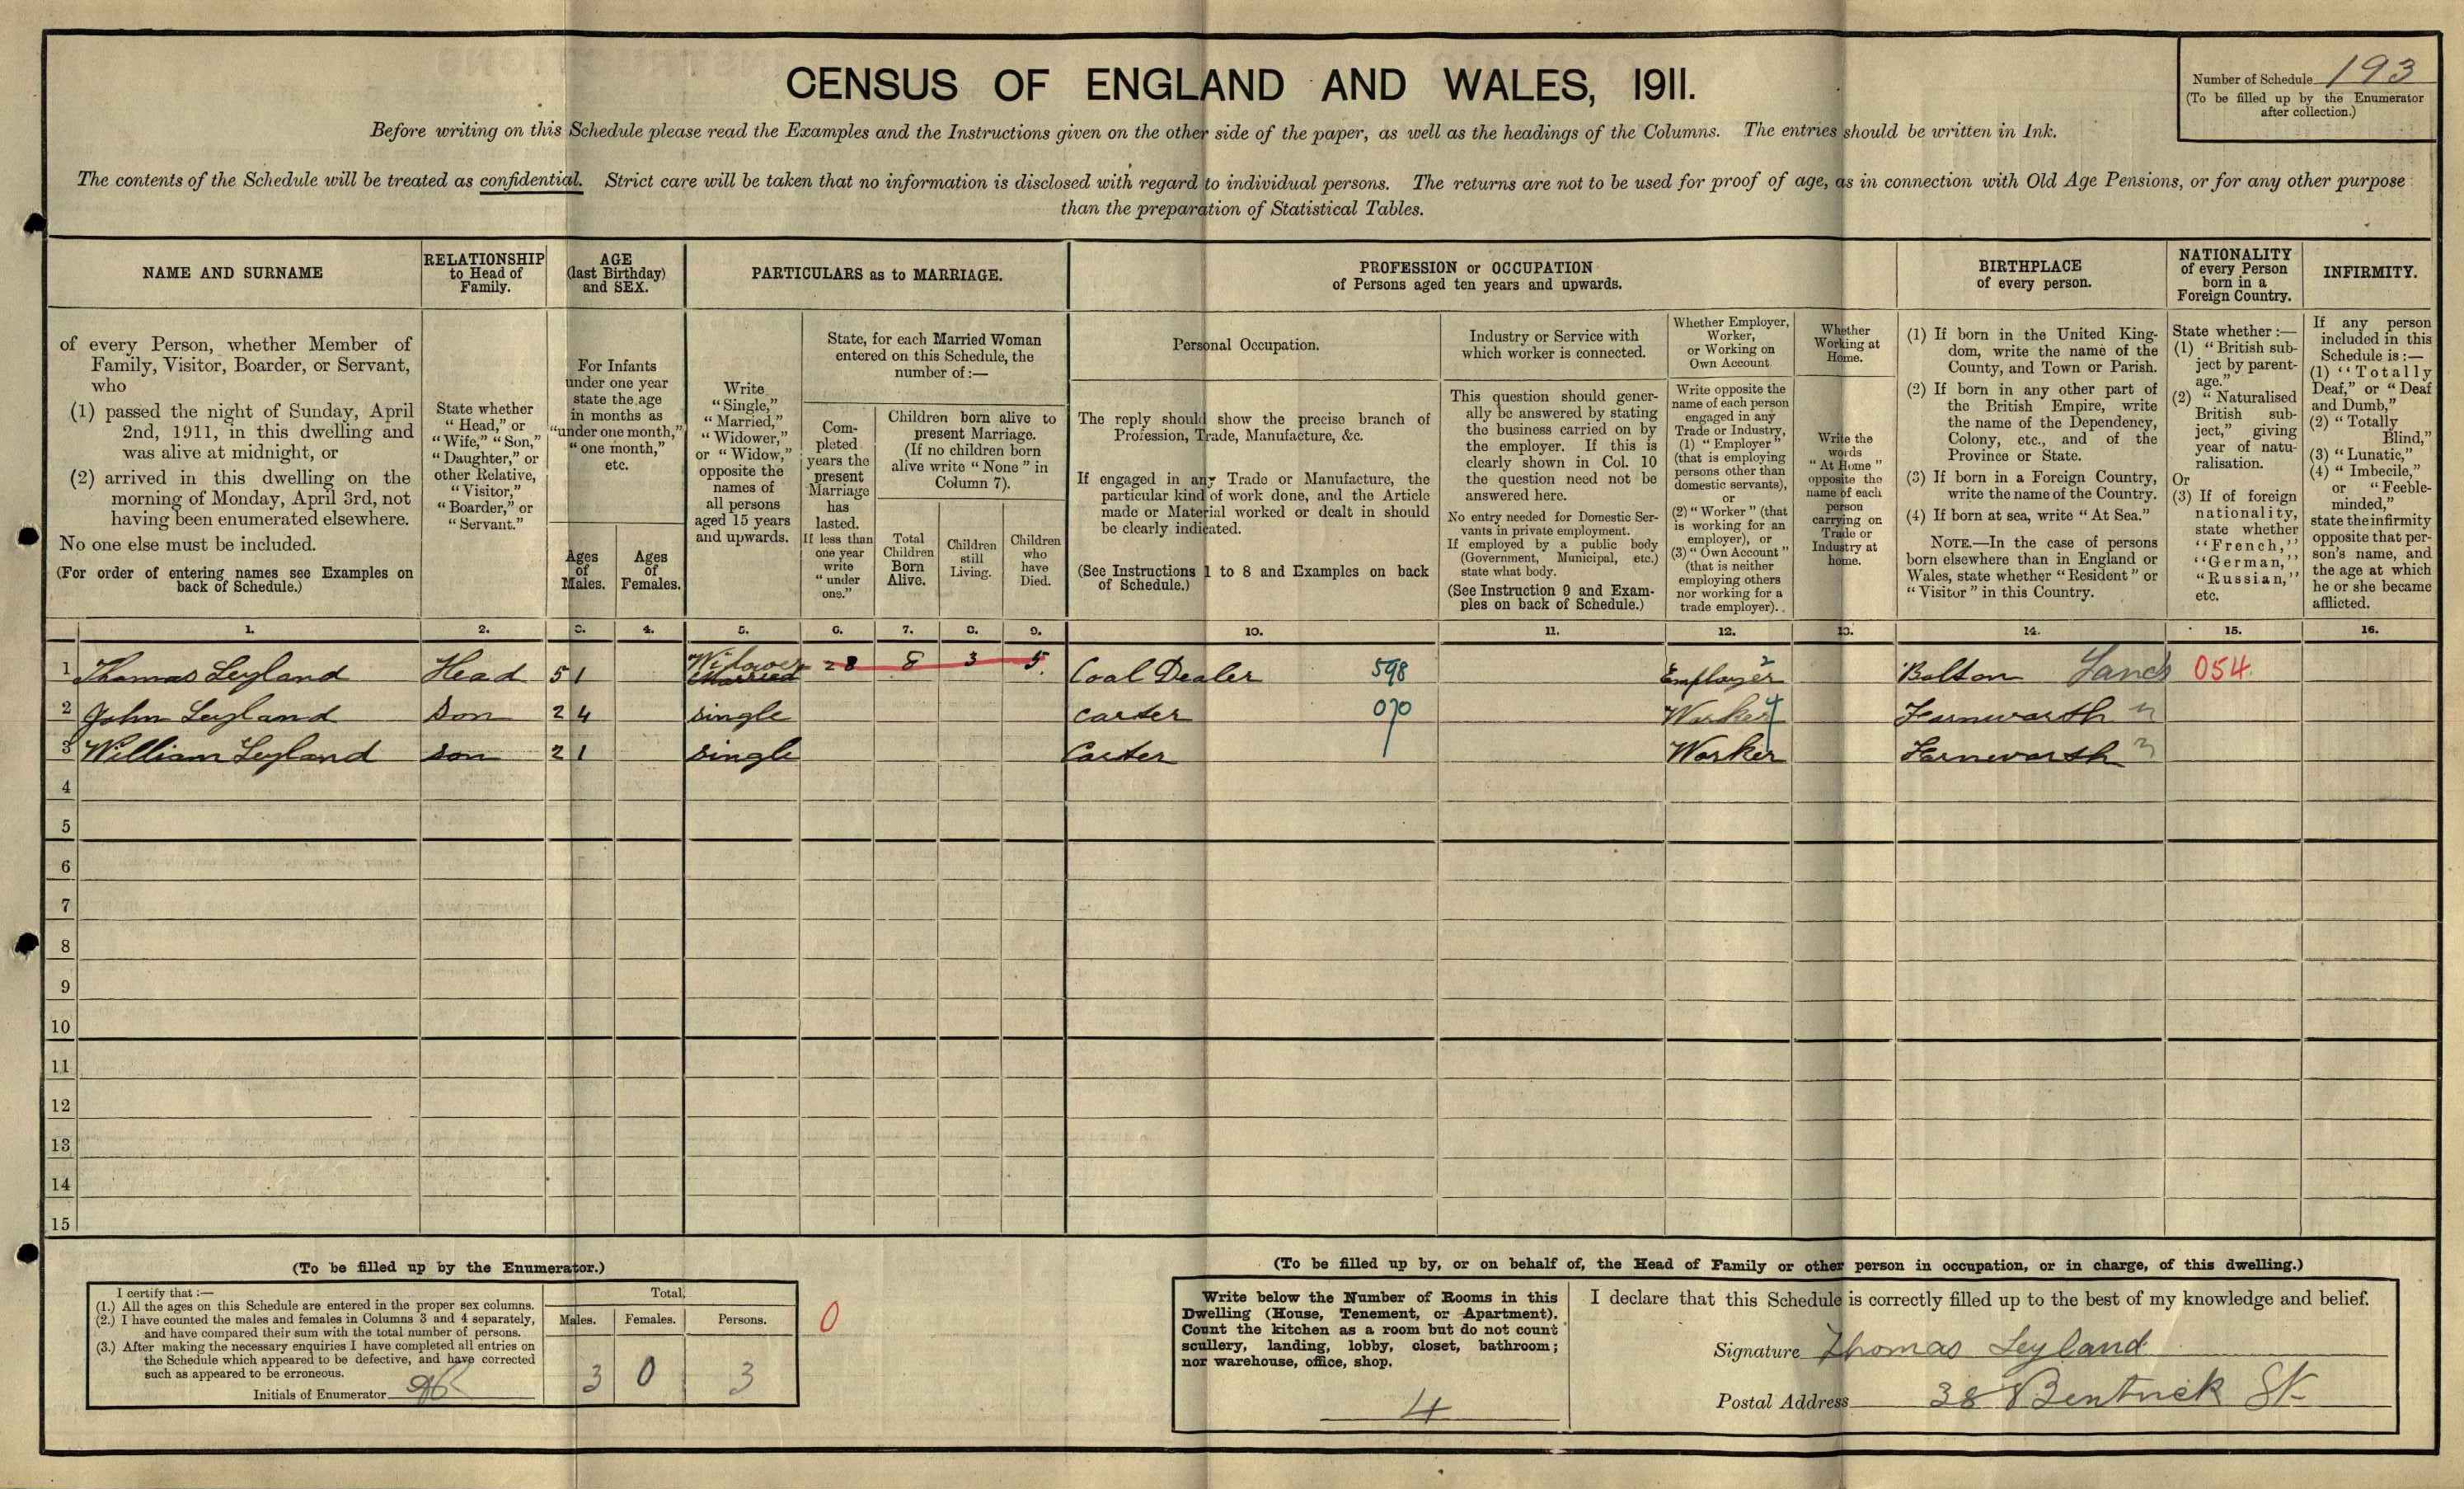 CENSUS OF ENGLAND AND WALES, 1911.
Number of Schedule 193
(To be filled up by the Enumerator
after collection.)
Before writing on this Schedule please read the Examples and the Instructions given on the other side of the paper, as well as the headings of the Columns. The entries should be written in Ink.
The contents of the Schedule will be treated as confidential. Strict care will be taken that no information is disclosed with regard to individual persons. The returns are not to be used for proof of age, as in connection with Old Age Pensions, or for any other purpose
than the preparation of Statistical Tables.
NAME AND SURNAME
of every Person, whether Member of
Family, Visitor, Boarder, or Servant,
who
(1) passed the night of Sunday, April
2nd, 1911, in this dwelling and
was alive at midnight, or
(2) arrived in this dwelling on the
morning of Monday, April 3rd, not
having been enumerated elsewhere.
No one else must be included.
(For order of entering names see Examples on
back of Schedule.)
RELATIONSHIP
to Head of
Family.
State whether
"Head," or
"Wife," "Son,"
"Daughter," or
other Relative,
"Visitor,"
"Boarder," or
"Servant."
AGE
(last Birthday)
and SEX.
For Infants
under one year
state the age
in months as
"under one month,"
"one month,"
etc.
Ages
of
Males.
Ages
of
Females.
PARTICULARS as to MARRIAGE.
Write
"Single,"
"Married,"
"Widower,"
or "Widow,"
opposite the
names of
all persons
aged 15 years
and upwards.
State, for each Married Woman
entered on this Schedule, the
number of:—
Com-
pleted
years the
present
Marriage
has
lasted.
If less than
one year
write
"under
one."
Children born alive to
present Marriage.
(If no children born
alive write "None" in
Column 7).
Total
Children
Born
Alive.
Children
still
Living.
Children
who
have
Died.
PROFESSION or OCCUPATION
of Persons aged ten years and upwards.
Personal Occupation.
The reply should show the precise branch of
Profession, Trade, Manufacture, &c.
If engaged in any Trade or Manufacture, the
particular kind of work done, and the Article
made or Material worked or dealt in should
be clearly indicated.
(See Instructions 1 to 8 and Examples on back
of Schedule.)
Industry or Service with
which worker is connected.
This question should gener-
ally be answered by stating
the business carried on by
the employer. If this is
clearly shown in Col. 10
the question need not be
answered here.
No entry needed for Domestic Ser-
vants in private employment.
If employed by a public body
(Government, Municipal, etc.)
state what body.
(See Instruction 9 and Exam-
ples on back of Schedule.)
Whether Employer,
Worker,
or Working on
Own Account
Write opposite the
name of each person
engaged in any
Trade or Industry,
(1) "Employer"
(that is employing
persons other than
domestic servants),
or
(2) "Worker" (that
is working for an
employer), or
(3) "Own Account"
(that is neither
employing others
nor working for a
trade employer).
Whether
Working at
Home.
Write the
words
"At Home"
opposite the
name of each
person
carrying on
Trade or
Industry at
home.
BIRTHPLACE
of every person.
(1) If born in the United King-
dom, write the name of the
County, and Town or Parish.
(2) If born in any other part of
the British Empire, write
the name of the Dependency,
Colony, etc., and of the
Province or State.
(3) If born in a Foreign Country,
write the name of the Country.
(4) If born at sea, write "At Sea."
NOTE.—In the case of persons
born elsewhere than in England or
Wales, state whether "Resident" or
"Visitor" in this Country.
NATIONALITY
of every Person
born in a
Foreign Country.
State whether:—
(1) "British sub-
ject by parent-
age."
(2) "Naturalised
British sub-
ject," giving
year of natu-
ralisation.
Or
(3) If of foreign
nationality,
state whether
"French,"
"German,"
"Russian,"
etc.
INFIRMITY.
If any person
included in this
Schedule is:—
(1) "Totally
Deaf," or "Deaf
and Dumb,"
(2) "Totally
Blind,"
(3) "Lunatic,"
(4) "Imbecile,"
or "Feeble-
minded,"
state the infirmity
opposite that per-
son's name, and
the age at which
he or she became
afflicted.
1. 2. 3. 4. 5. 6. 7. 8. 9. 10. 11. 12. 13. 14. 15. 16.
1 Thomas Leyland Head 51 Widower Married 28 8 3 5 Coal Dealer 598 Employer 2 Bolton Lancs 054
2 John Leyland Son 24 single carter 070 Worker 4 Farnworth "
3 William Leyland son 21 single Carter Worker Farnworth "
4
5
6
7
8
9
10
11
12
13
14
15
(To be filled up by the Enumerator.)
I certify that:—
(1.) All the ages on this Schedule are entered in the proper sex columns.
(2.) I have counted the males and females in Columns 3 and 4 separately,
and have compared their sum with the total number of persons.
(3.) After making the necessary enquiries I have completed all entries on
the Schedule which appeared to be defective, and have corrected
such as appeared to be erroneous.
Initials of Enumerator
Total.
Males. Females. Persons.
3 0 3
0
(To be filled up by, or on behalf of, the Head of Family or other person in occupation, or in charge, of this dwelling.)
Write below the Number of Rooms in this
Dwelling (House, Tenement, or Apartment).
Count the kitchen as a room but do not count
scullery, landing, lobby, closet, bathroom;
nor warehouse, office, shop.
4
I declare that this Schedule is correctly filled up to the best of my knowledge and belief.
Signature Thomas Leyland
Postal Address 38 Bentinck St